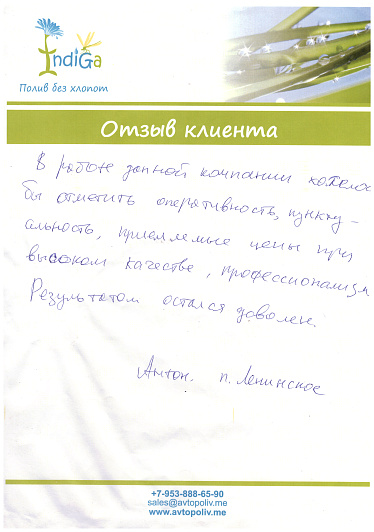 IndiGa
Полив без хлопот
Отзыв клиента
В работе данной компании хотелос
бы отметить оперативность, пункту-
альность, приемлемые цены при
высоком качестве, профессионализм
Результатом остался доволен.
Антон. п. Ленинское
+7-953-888-65-90
sales@avtopoliv.me
www.avtopoliv.me